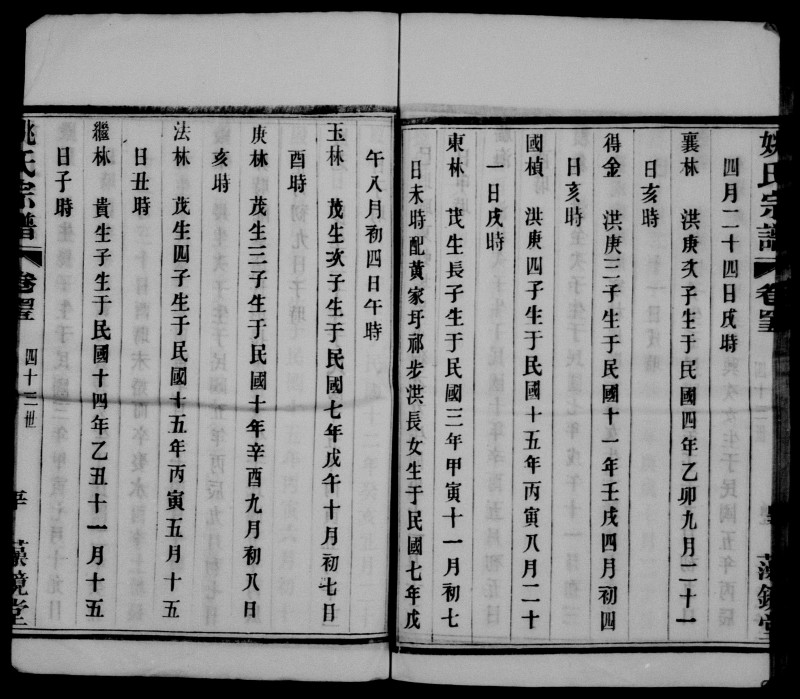 姚氏宗譜
卷
四十三世
藻鏡堂
四月二十四日戌時
襄林 洪庚次子生于民國四年乙卯九月二十一
日亥時
得金 洪庚三子生于民國十一年壬戌四月初四
日亥時
國楨 洪庚四子生于民國十五年丙寅八月二十
一日戌時
東林 茂生長子生于民國三年甲寅十一月初七
日未時配黃家圩祁步洪長女生于民國七年戊
午八月初四日午時
玉林 茂生次子生于民國七年戊午十月初七日
酉時
庚林 茂生三子生于民國十年辛酉九月初八日
亥時
法林 茂生四子生于民國十五年丙寅五月十五
日丑時
繼林 貴生子生于民國十四年乙丑十一月十五
日子時
姚氏宗譜
卷
四十三世
藻鏡堂